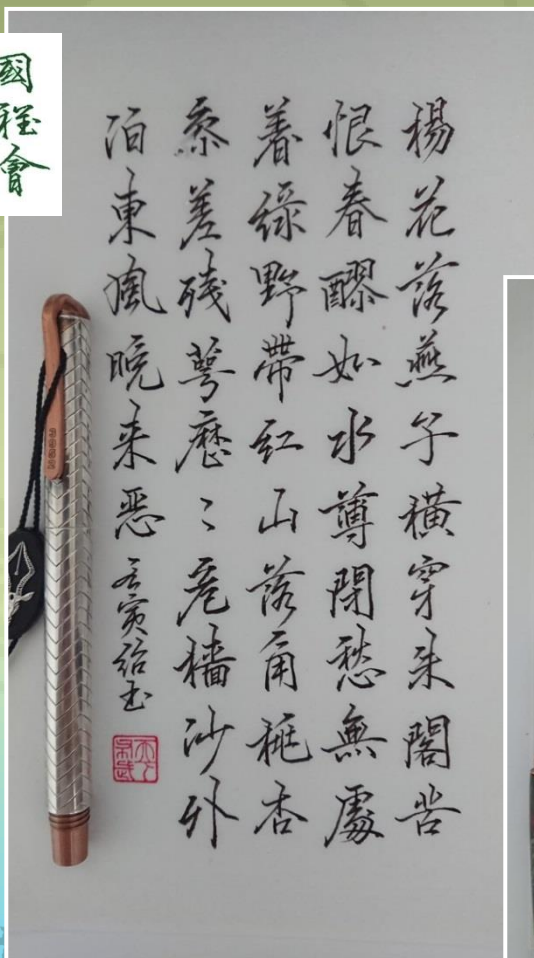 國
程
會
楊花落燕子橫穿朱閣苦
恨春醪如水薄閒愁無處
着綠野帶紅山落角桃杏
參差殘萼歷〻危檣沙外
泊東風晚来恶 壬寅 书